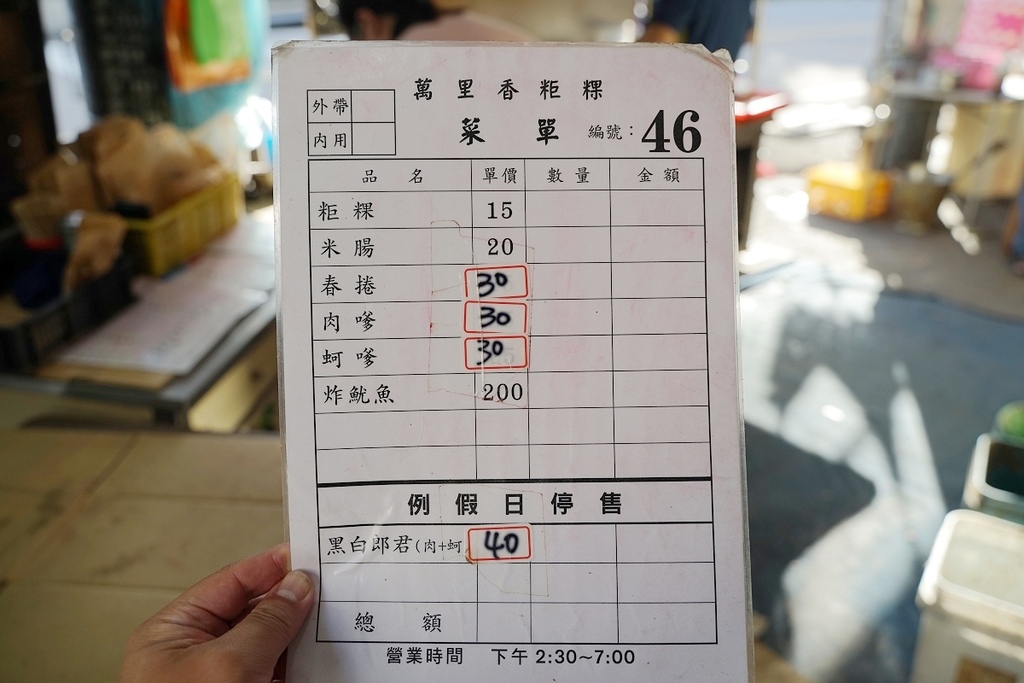 萬里香粔粿
外帶
內用
菜單 編號：46
品名 單價 數量 金額
粔粿 15
米腸 20
春捲 30
肉嗲 30
蚵嗲 30
炸魷魚 200
例假日停售
黑白郎君(肉+蚵 40
總額
營業時間 下午 2:30~7:00